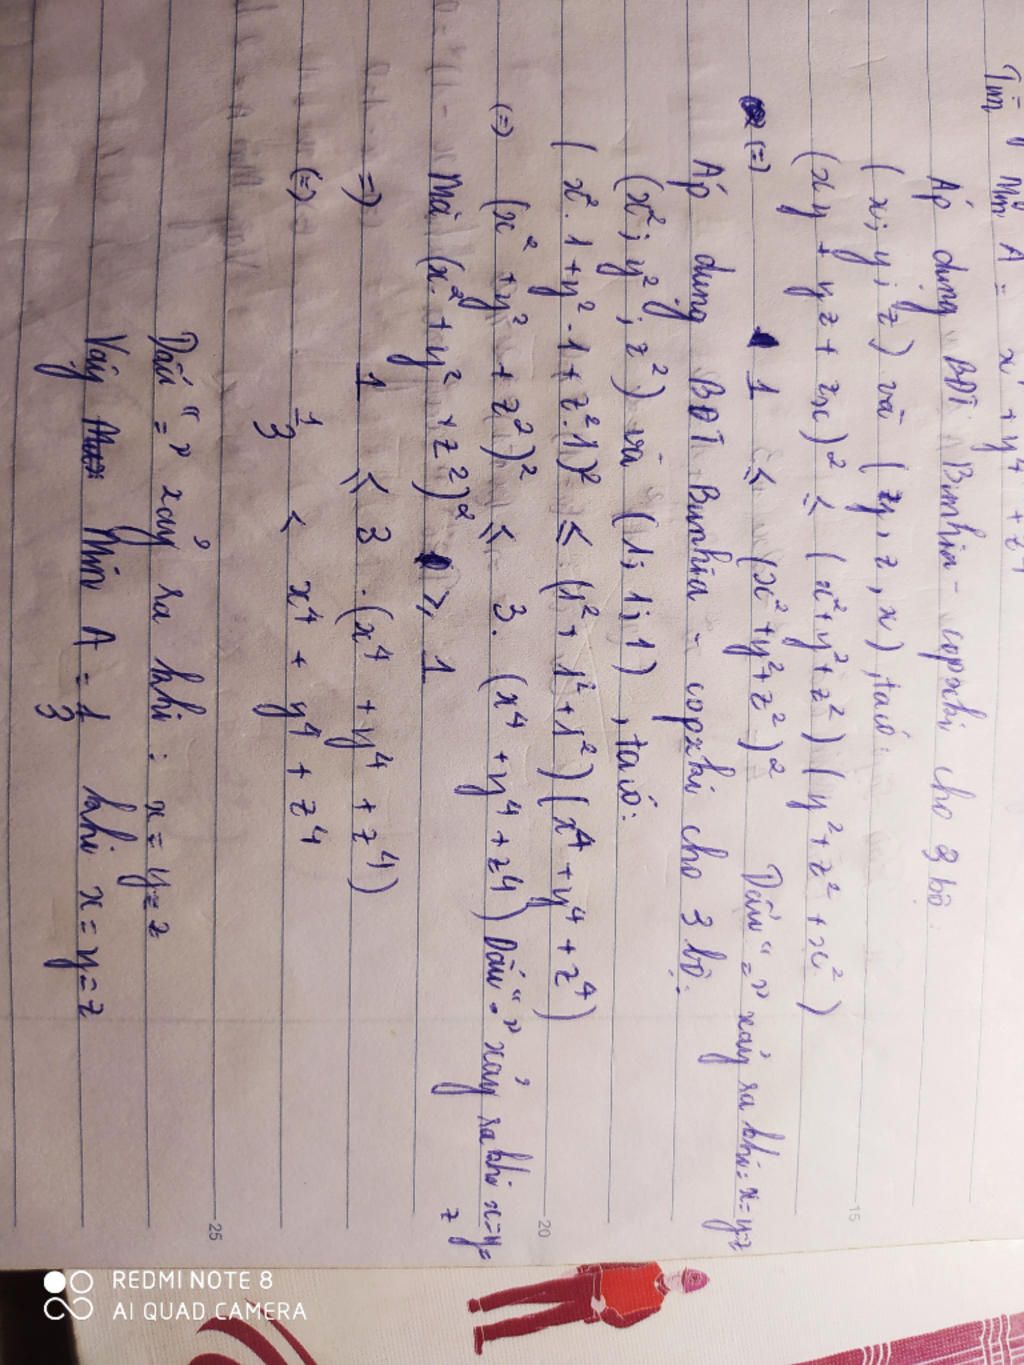 Tìm Min A = x⁴ + y⁴ + z⁴
Áp dụng BĐT Bunhia - copxki cho 2 bộ:
(x; y; z) và (y, z, x), ta có:
(xy + yz + zx)² ≤ (x² + y² + z²)(y² + z² + x²)
(=) 1 ≤ (x² + y² + z²)² Dấu "=" xảy ra khi: x = y = z
Áp dụng BĐT Bunhia - copxki cho 3 bộ:
(x²; y²; z²) và (1; 1; 1), ta có:
(x².1 + y².1 + z².1)² ≤ (1² + 1² + 1²)(x⁴ + y⁴ + z⁴)
(=) (x² + y² + z²)² ≤ 3. (x⁴ + y⁴ + z⁴) Dấu "=" xảy ra khi x = y = z
Mà (x² + y² + z²)² ≥ 1
=) 1 ≤ 3 . (x⁴ + y⁴ + z⁴)
(=) 1/3 ≤ x⁴ + y⁴ + z⁴
Dấu "=" xảy ra khi : x = y = z
Vậy Min A = 1/3 khi x = y = z
15
20
25
REDMI NOTE 8
AI QUAD CAMERA